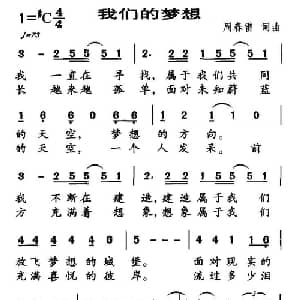 我们的梦想
1=#C 4/4
词曲
♩=73
3 - 2 5 5 5 5 1 2 5 5 5 5 1
我 一直在 寻 找,属于我们共同
长 越来越 孤 单,面对未知蔚蓝
1 6 0 6 0 6 1 2 2 2
的天空,梦想的方向。
的天空,一个人发呆。前
3 - 2 5 5 5 5 1 2 5 5 5 5 1
我 不断在 建 造,建造属于我们
方 充满着 想 象,想象属于我
放飞梦想的城堡。面对现实的
充满喜悦的彼岸。流过多少泪